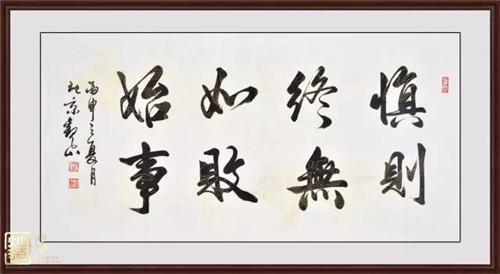 慎終如始
則無敗事
丙申之夏月